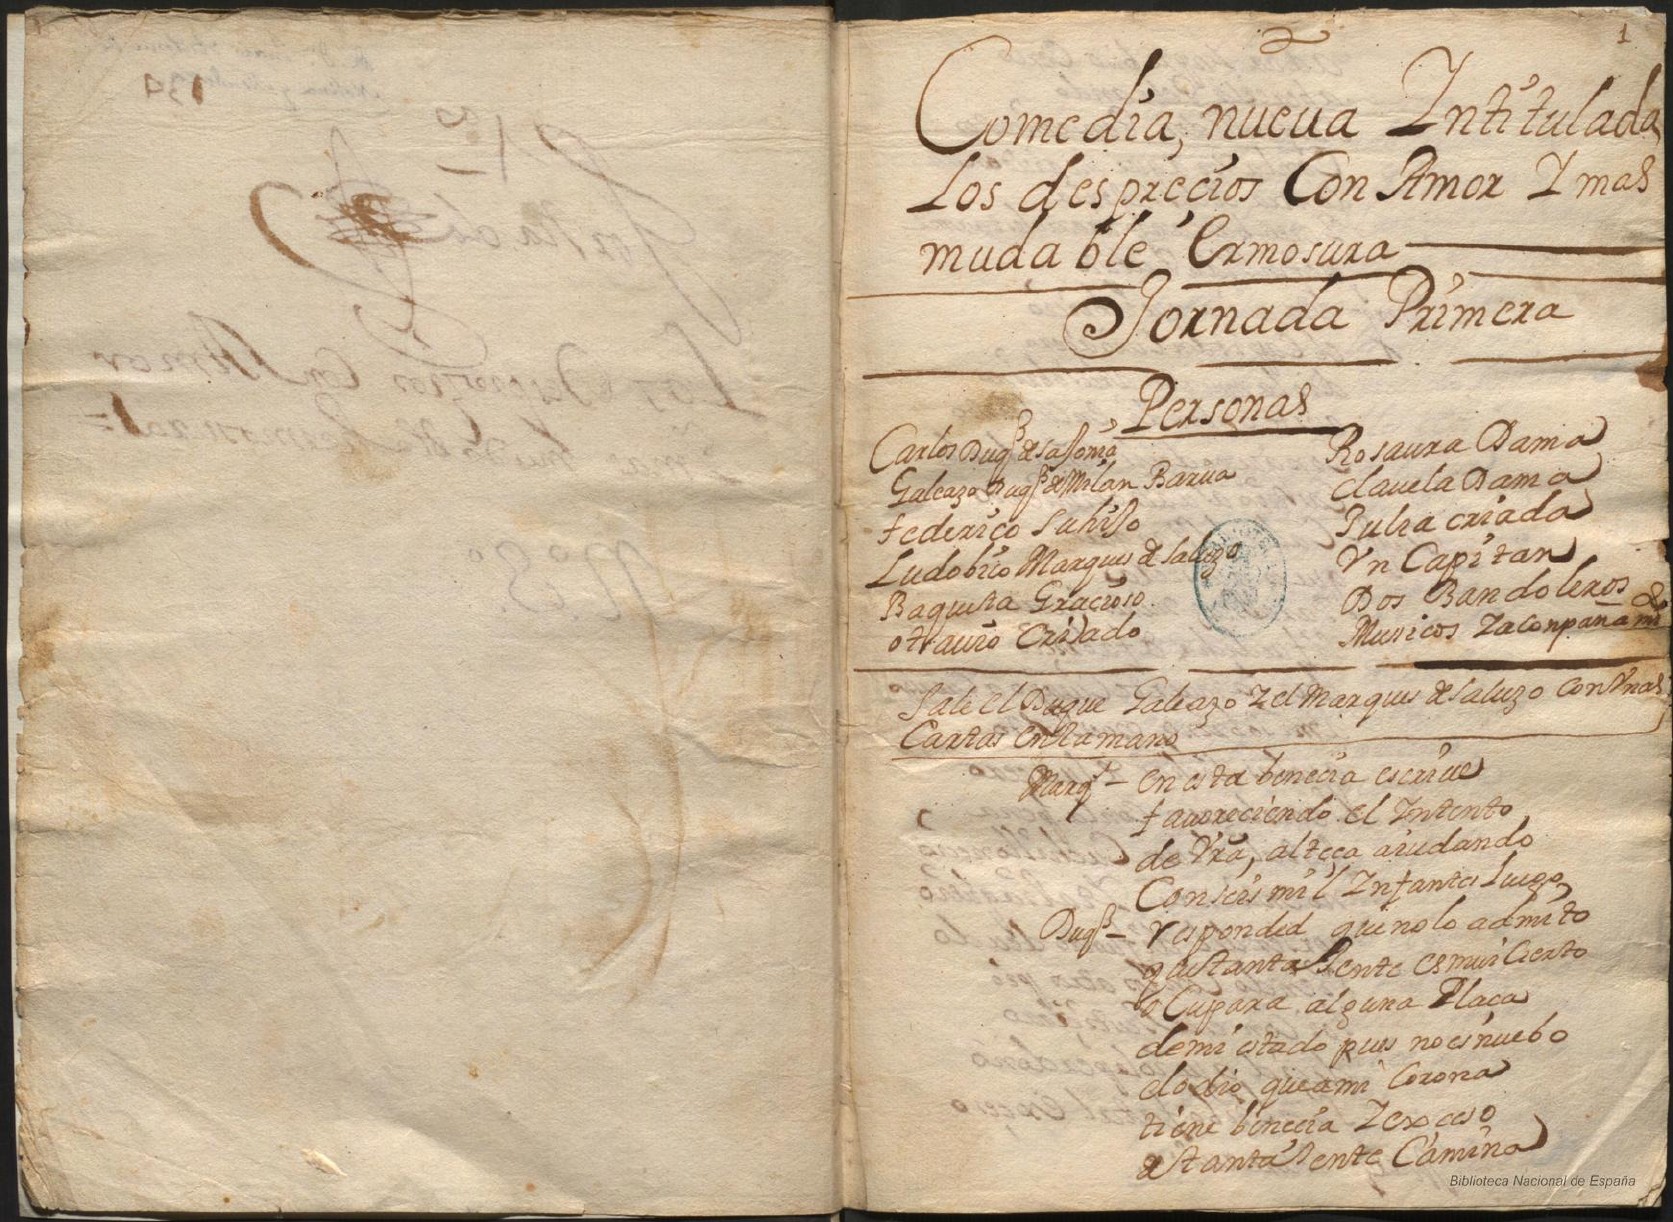 1
Comedia, nueva Intitulada
Los desprecios Con Amor Y mas
mudable Ermosura
Jornada Primera
Personas
Carlos Duqe de
Galeazo Duqe de Milan Barva
Federico su hijo
Ludobico Marques de Saluzo
Baqueta Gracioso
otrauro Criado
Rosaura Dama
clavela Dama
Julia criada
Vn Capitan
Dos Bandoleros
Musicos Yaconpañamto
Sale el Duque Galeazo Y el Marques de Saluzo con Vnas
Cartas en la mano
Marqs – en esta benecia escrive
favoreciendo el Yntento
de Vra, alteça aiudando
Con seis mil Infantes luego
Duqe – responded que no lo admito
q tanta Jente es mui Cierto
oCupara alguna Plaça
de mi estado pues no es nuebo
el odio que a mi Corona
tiene benecia Y exceso
de tanta Jente Camina
Biblioteca Nacional de España